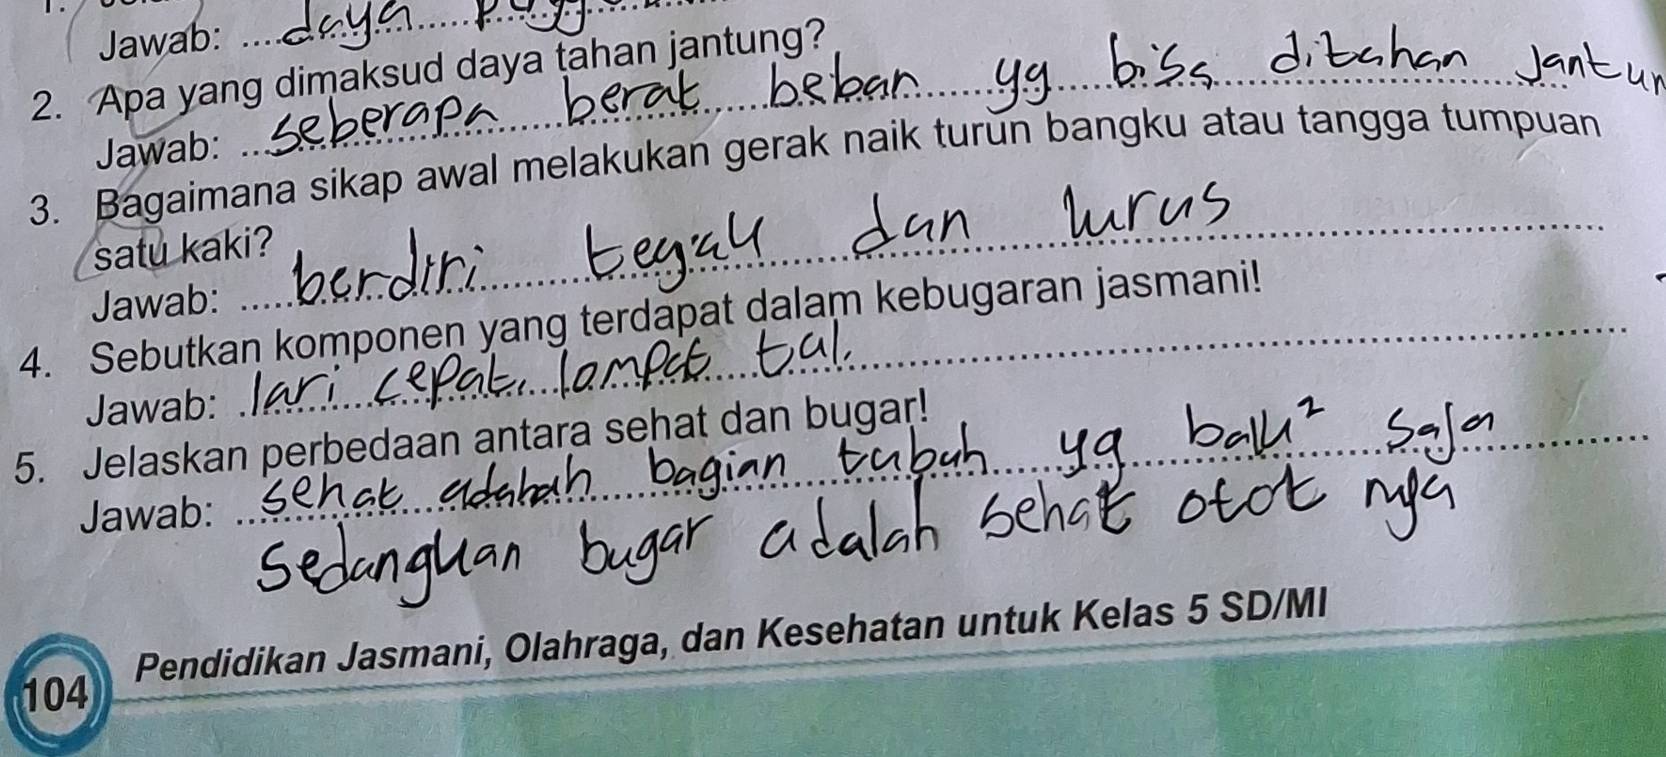 Jawab: ....daya
2. Apa yang dimaksud daya tahan jantung?
Jawab: ...seberapa berat beban yg bisa ditahan jantun
3. Bagaimana sikap awal melakukan gerak naik turun bangku atau tangga tumpuan
satu kaki?
Jawab: .....berdiri tegak dan lurus
4. Sebutkan komponen yang terdapat dalam kebugaran jasmani!
Jawab: .lari cepat, lompat tal.
5. Jelaskan perbedaan antara sehat dan bugar!
Jawab: ...sehat adabah bagian tubuh yg baik² saja
Sedangkan bugar adalah sehat otot nya
Pendidikan Jasmani, Olahraga, dan Kesehatan untuk Kelas 5 SD/MI
104